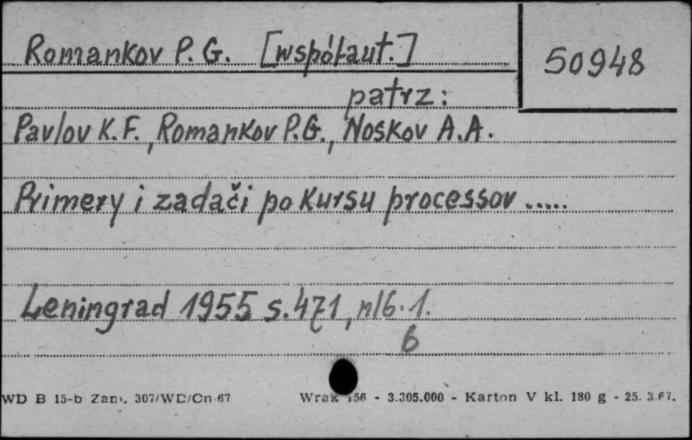 Romankov P. G. [współaut.]
50948
patrz:
Pavlov K.F., Romankov P.G., Noskov A.A.
Primery i zadači po kursu processov .....
Leningrad 1955 s. 471, nlb. 1.
6
WD B 15-b Zam. 307/WD/Cn 67 Wrak 156 - 3.305.000 - Karton V kl. 180 g - 25. 3.67.